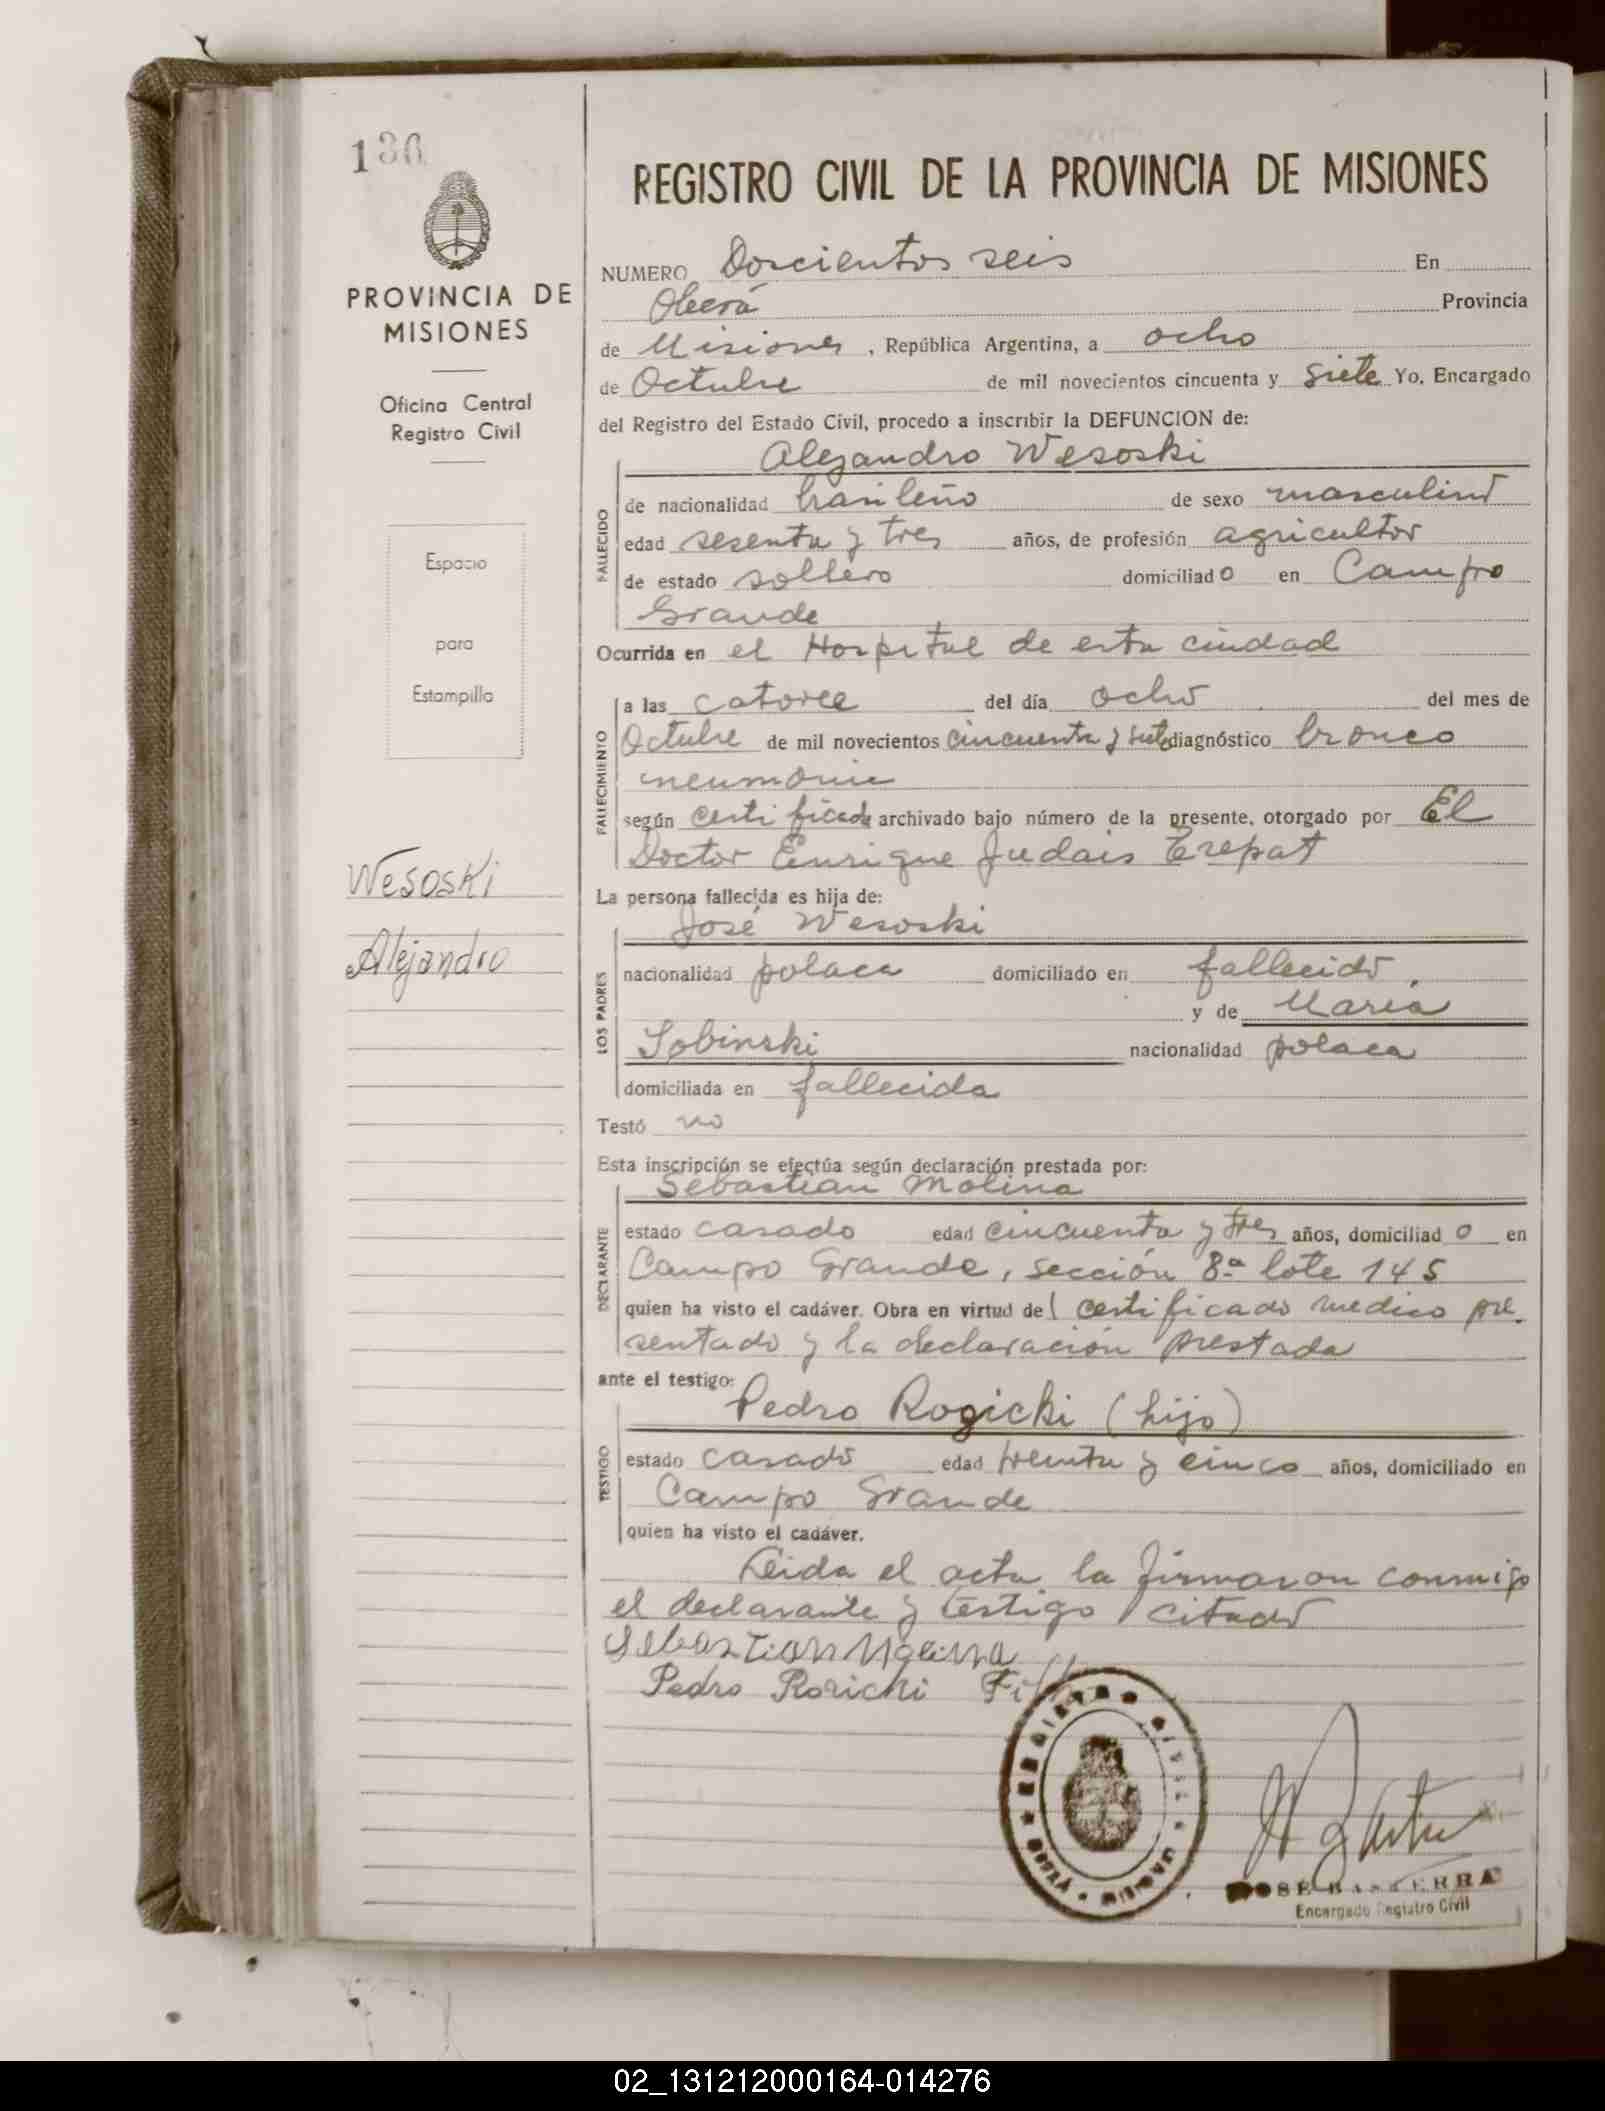 136
PROVINCIA DE
MISIONES
Oficina Central
Registro Civil
Espacio
para
Estampilla
Wesoski
Alejandro
REGISTRO CIVIL DE LA PROVINCIA DE MISIONES
NUMERO Doscientos seis En
Oberá Provincia
de Misiones, República Argentina, a ocho
de Octubre de mil novecientos cincuenta y siete Yo, Encargado
del Registro del Estado Civil, procedo a inscribir la DEFUNCION de:
Alejandro Wesoski
FALLECIDO
de nacionalidad brasileño de sexo masculino
edad sesenta y tres años, de profesión agricultor
de estado soltero domiciliado en Campo
Grande
Ocurrida en el Hospital de esta ciudad
FALLECIMIENTO
a las catorce del día ocho del mes de
Octubre de mil novecientos cincuenta y siete diagnóstico bronco
neumonia
según certificado archivado bajo número de la presente, otorgado por El
Doctor Enrique Judais Trepat
La persona fallecida es hija de:
José Wesoski
LOS PADRES
nacionalidad polaca domiciliado en fallecido,
y de María
Sobinski nacionalidad polaca
domiciliada en fallecida
Testó no
Esta inscripción se efectúa según declaración prestada por:
Sebastian Molina
DECLARANTE
estado casado edad cincuenta y tres años, domiciliado en
Campo Grande, sección 8ª lote 145
quien ha visto el cadáver. Obra en virtud del certificado medico pre-
sentado y la declaración prestada
ante el testigo:
Pedro Rogicki (hijo)
TESTIGO
estado casado edad treinta y cinco años, domiciliado en
Campo Grande
quien ha visto el cadáver.
Leida el acta la firmaron conmigo
el declarante y testigo citado
Sebastian Molina
Pedro Rosicki
REGISTRO CIVIL
OBERÁ MISIONES
JOSÉ BASTERRA
Encargado Registro Civil
02_131212000164-014276